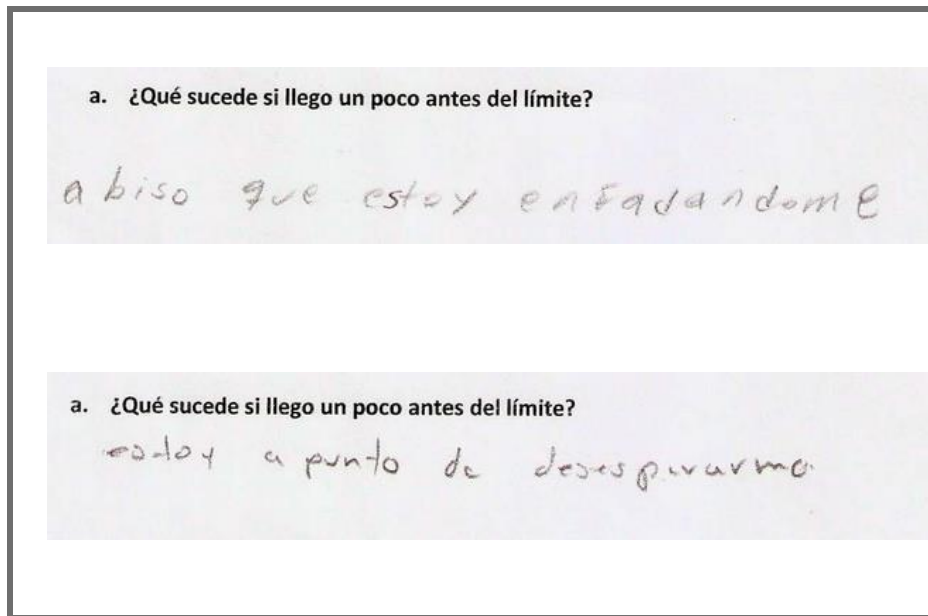 a. ¿Qué sucede si llego un poco antes del límite?
abiso que estoy enfadandome
a. ¿Qué sucede si llego un poco antes del límite?
estoy a punto de desesperarme